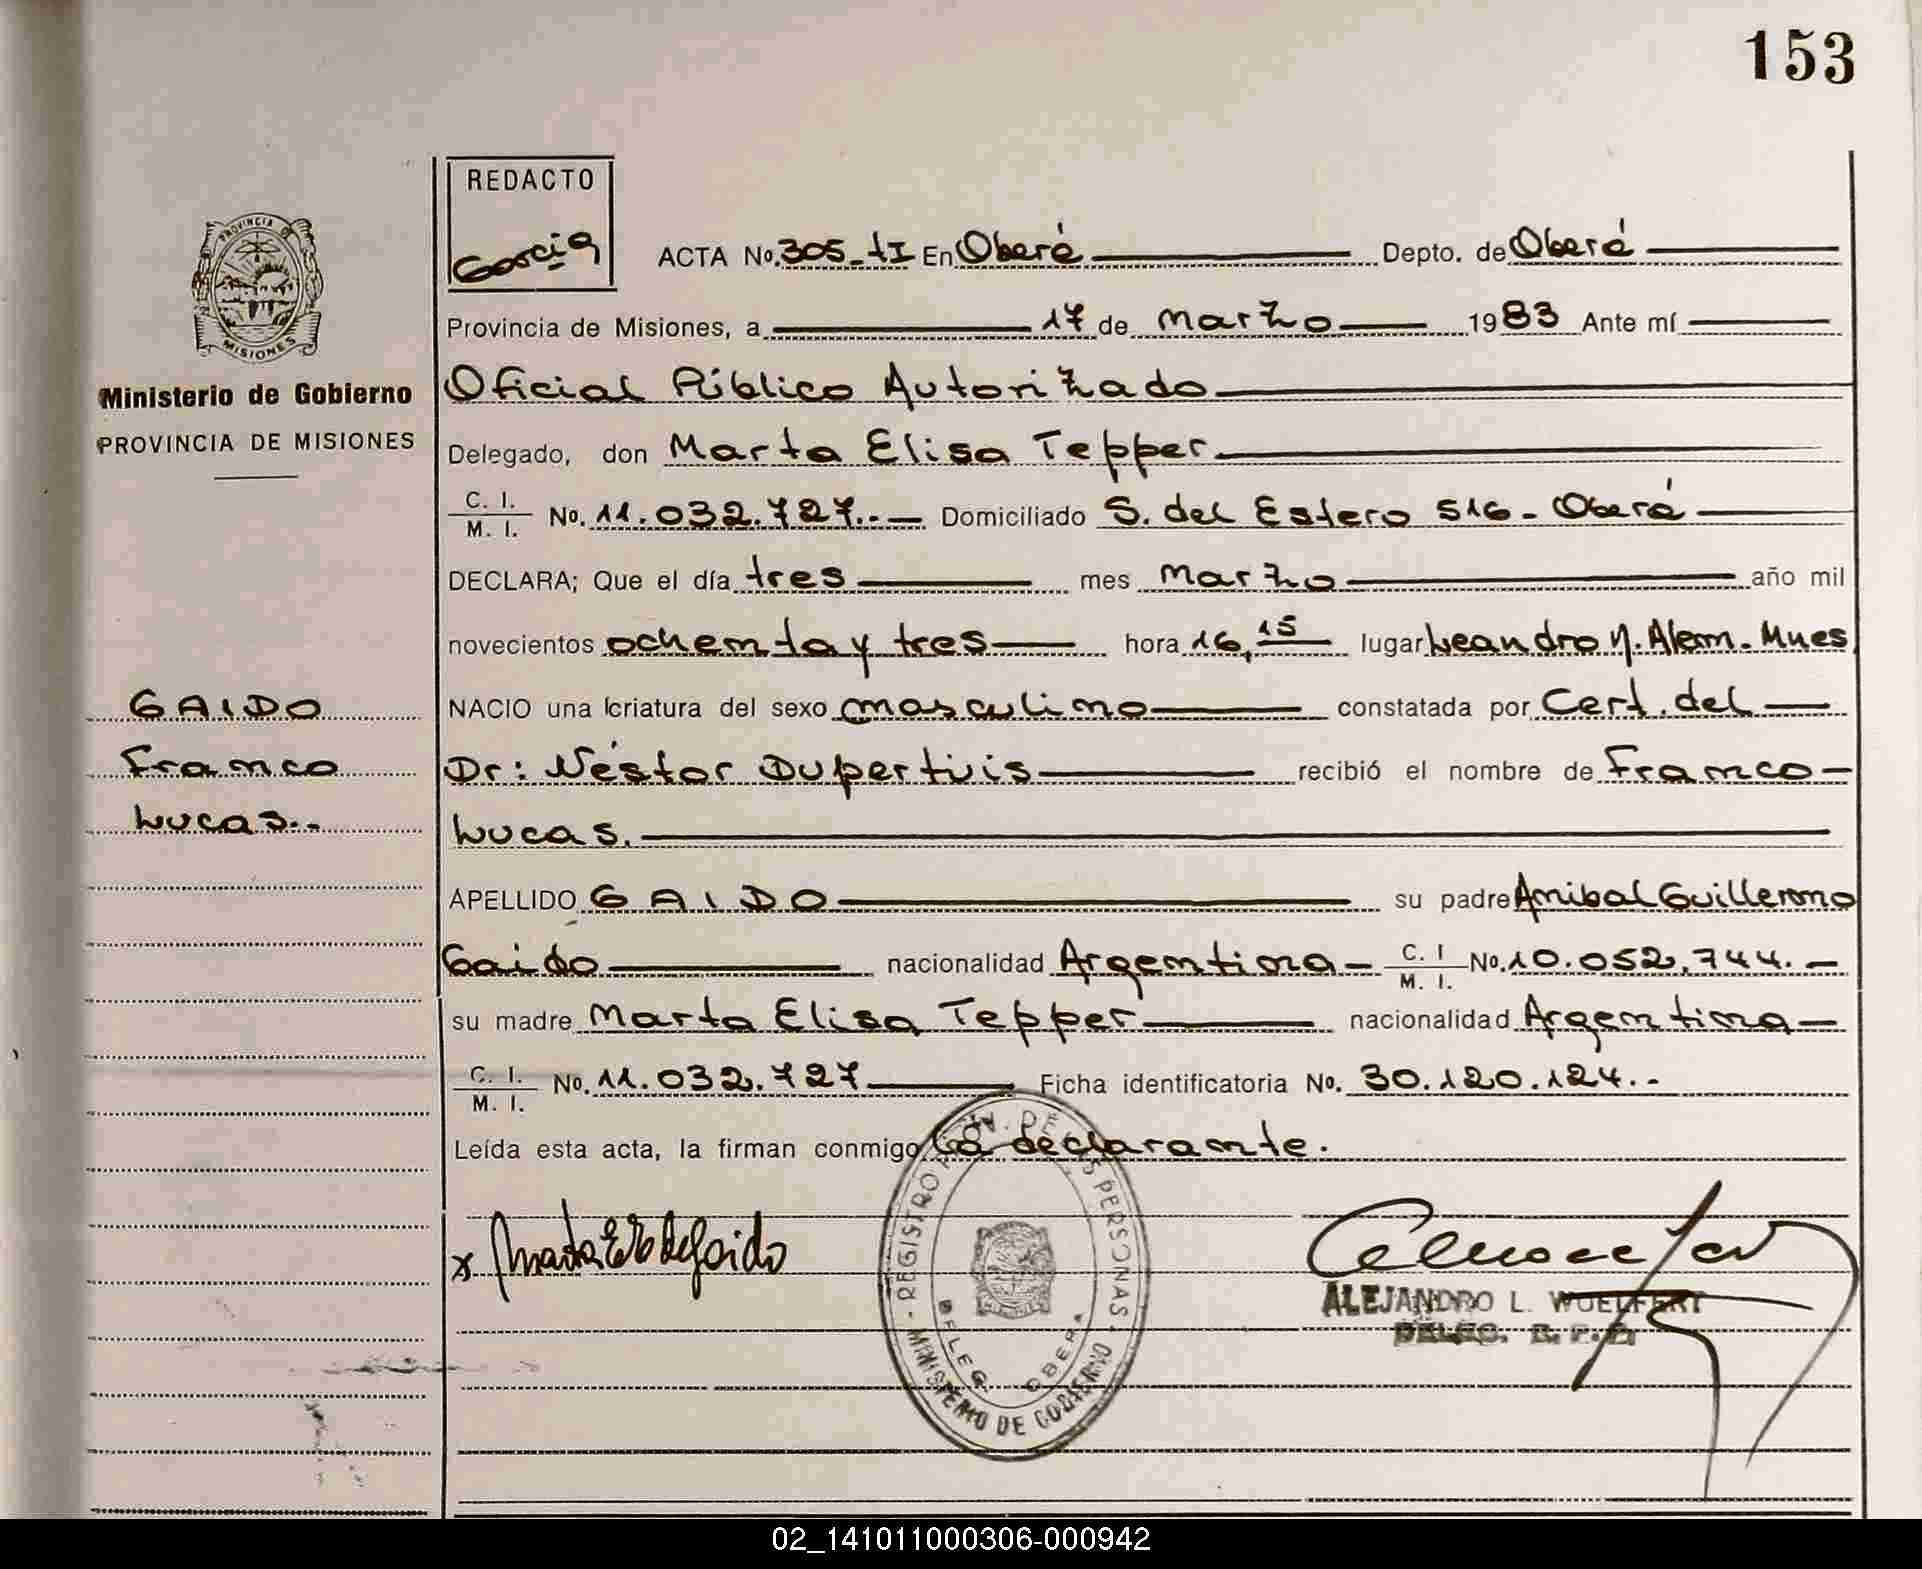 153
REDACTO
Garcia
PROVINCIA DE
MISIONES
Ministerio de Gobierno
PROVINCIA DE MISIONES
ACTA No. 305-tI En Oberá Depto. de Oberá
Provincia de Misiones, a 17 de marzo 1983 Ante mí
Oficial Público Autorizado
Delegado, don Marta Elisa Tepper
C. I. / M. I. No. 11.032.727.- Domiciliado S. del Estero 516 - Oberá
DECLARA; Que el día tres mes marzo año mil
novecientos ochenta y tres hora 16,15 lugar Leandro N. Alem. Mnes
GAIDO
NACIO una criatura del sexo masculino constatada por Cert. del
Franco
Dr: Néstor Dupertuis recibió el nombre de Franco
Lucas.-
Lucas.
APELLIDO GAIDO su padre Anibal Guillermo
Gaido nacionalidad Argentina C. I / M. I. No. 10.052.744.-
su madre Marta Elisa Tepper nacionalidad Argentina
C. I. / M. I. No. 11.032.727 Ficha identificatoria No. 30.120.124.-
Leída esta acta, la firman conmigo la declarante.
x Marta E T de Gaido
REGISTRO DE LAS PERSONAS
MINISTERIO DE GOBIERNO
DELEG. OBERA
ALEJANDRO L. WUELFERT
DELEG. R. P. P.
02_141011000306-000942